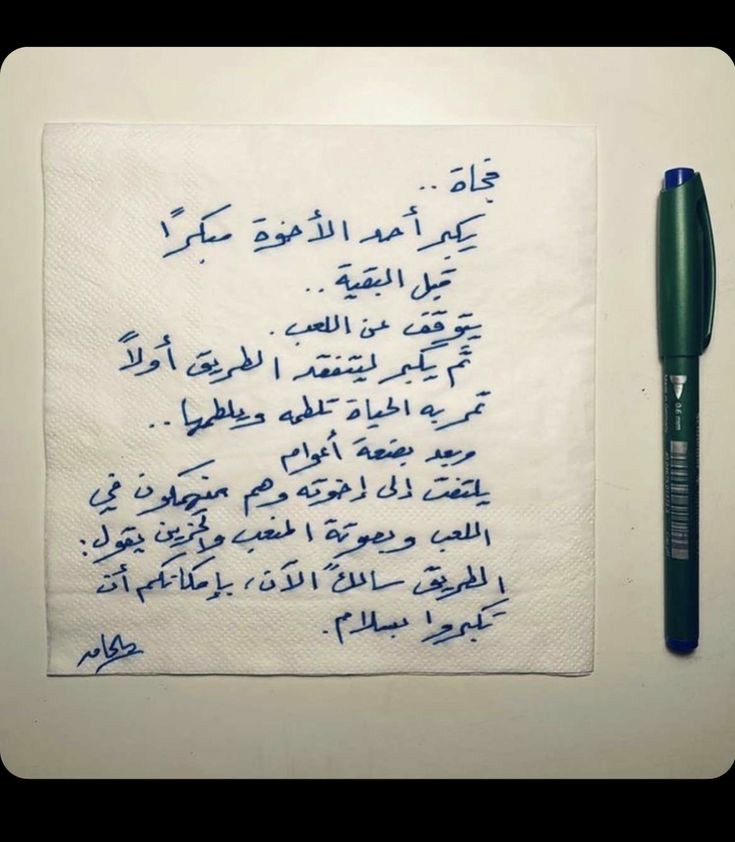 فجاة ..
يكبر أحد الأخوة مبكرًا
قبل البقية ..
يتوقف عن اللعب .
ثم يكبر ليتفقد الطريق أولاً
تمر به الحياة تلطمه ويلطمها ..
وبعد بضعة أعوام
يلتفت إلى إخوته وهم منهمكون في
اللعب وبصوتة المتعب والحزين يقول :
الطريق سالكًا الآن ، بإمكانكم أن
تكبروا بسلام .
0.6 mm